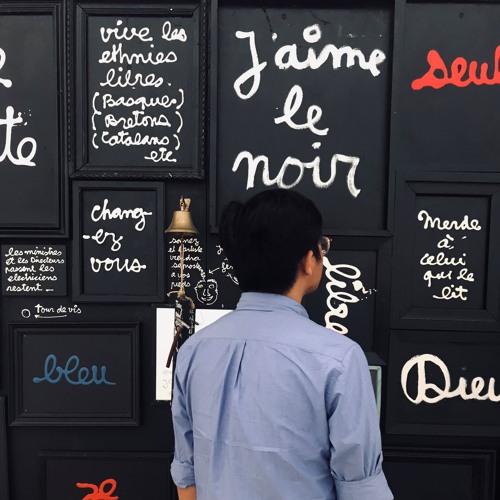 te
vive les
ethnies
libres.
(Basques)
(Bretons)
(Catalans)
etc
J'aime
le
noir
seul
chang-
-ez
vous
les ministres
et les Directeurs
passent les
electriciens
restent -
sonnez
et l'artiste
viendra
Merde
à
celui
qui le
lit
libre
tour de vis
bleu
Dieu